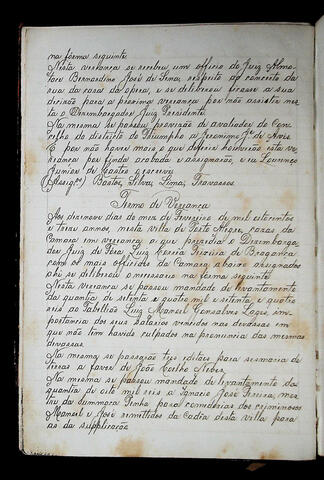 na fórma seguinte
Nesta vereança se recebeu um officio do Juiz Almo-
tace Bernardino José de Sena, respeito ao concerto da
rua da casa da opera, e se deliberou ficasse a sua
decisão para a proxima vereança por não assistir nes-
ta o Dezembargador Juiz Presidente
Na mesma se passou provisão de avaliador do Con-
celho do districto do Triumpho a Jeronimo Je de Aviz
E por não haver mais o que deferir houverão esta ve-
reança por finda acabada e assignarão, eu Lourenço
Junior de Castro a escrevi
(Assigdos) Bastos, Silva, Lima, Travassos.
Termo de Vereança
Aos dezenove dias do mez de Fevereiro de mil oitocentos
e treze annos, nesta villa de Porto Alegre, casas da
Camara em vereança a que presedio o Dezembarga-
dor Juiz de Fora Luiz Corrêa Teixeira de Bragança
com os mais officiaes da Camara abaixo assignados
ahi se deliberou o necessario na forma seguinte
Nesta vereança se passou mandado de levantamento
da quantia de setenta e quatro mil e setenta e quatro
reis ao Tabellião Luiz Manoel Gonsalves Lages, im-
portancia dos seus salarios vencidos nas devassas em
que não tem havido culpados na pronuncia das mesmas
devassas
Na mesma se passarão tres editaes para sesmaria de
terras a favor de João Coelho Neves
Na mesma se passou mandado de levantamento da
quantia de oito mil reis a Ignacio José Pereira, mes-
tre da Summaca Penha para comedorias dos criminosos
Manoel e José remettidos da Cadia desta villa para
as da supplicação